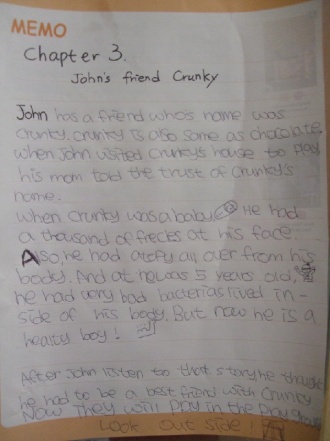 MEMO
Chapter 3.
John's friend Crunky
John has a friend who's name was
crunky. crunky is also same as chocolate.
when John visited Crunky's house to play
his mom told the trust of crunky's
name.
when crunky was a baby He had
a thousand of freckes at his face
Also, he had atopy all over from his
body. And at he was 5 years old,
he had very bad bacterias lived in-
side of his body. But now he is a
healty boy!
After John listen to that story he thought
he had to be a best friend with Crunky
Now They will play in the play ground
Look out side!